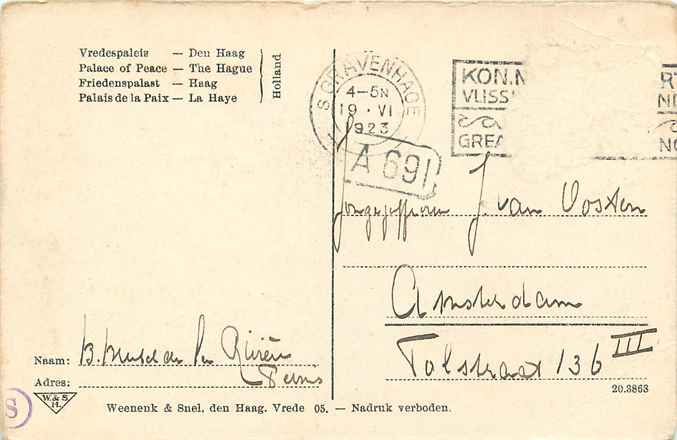 Vredespaleis — Den Haag
Palace of Peace — The Hague
Friedenspalast — Haag
Palais de la Paix — La Haye
Holland
S GRAVENHAGE
4-5N
19 · VI
1923
KON.M
VLISS
GREA
A 691
J. van Oosten
Amsterdam
Tolstraat 136 III
Naam: B.
Adres:
20.3863
W. & S.
H.
S
Weenenk & Snel, den Haag. Vrede 05. — Nadruk verboden.